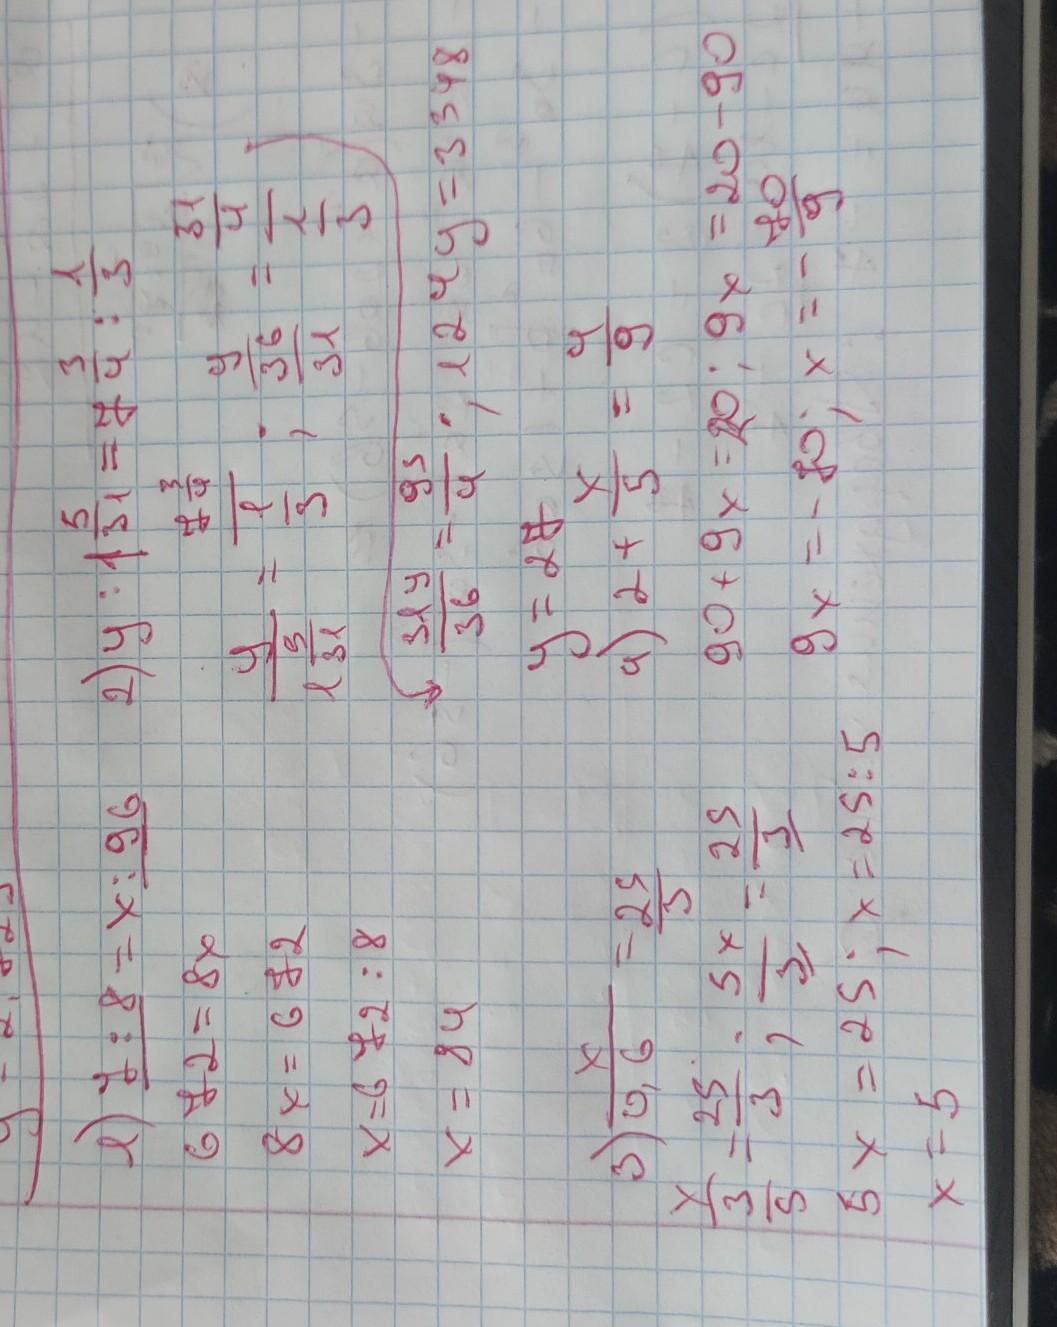 1) 7 : 8 = x : 96
672 = 8x
8x = 672
x = 672 : 8
x = 84
2) y : 1 5/31 = 7 3/4 : 1/3
y / 1 5/31 = 7 3/4 / 1/3 ; y / 36/31 = 31/4 / 1/3
31y/36 = 93/4 ; 124y = 3348
y = 27
3) x/0,6 = 25/3
x / 3/5 = 25/3 ; 5x/3 = 25/3
5x = 25 ; x = 25 : 5
x = 5
4) 2 + x/5 = 4/9
90 + 9x = 20 ; 9x = 20 - 90
9x = - 70 ; x = - 70/9